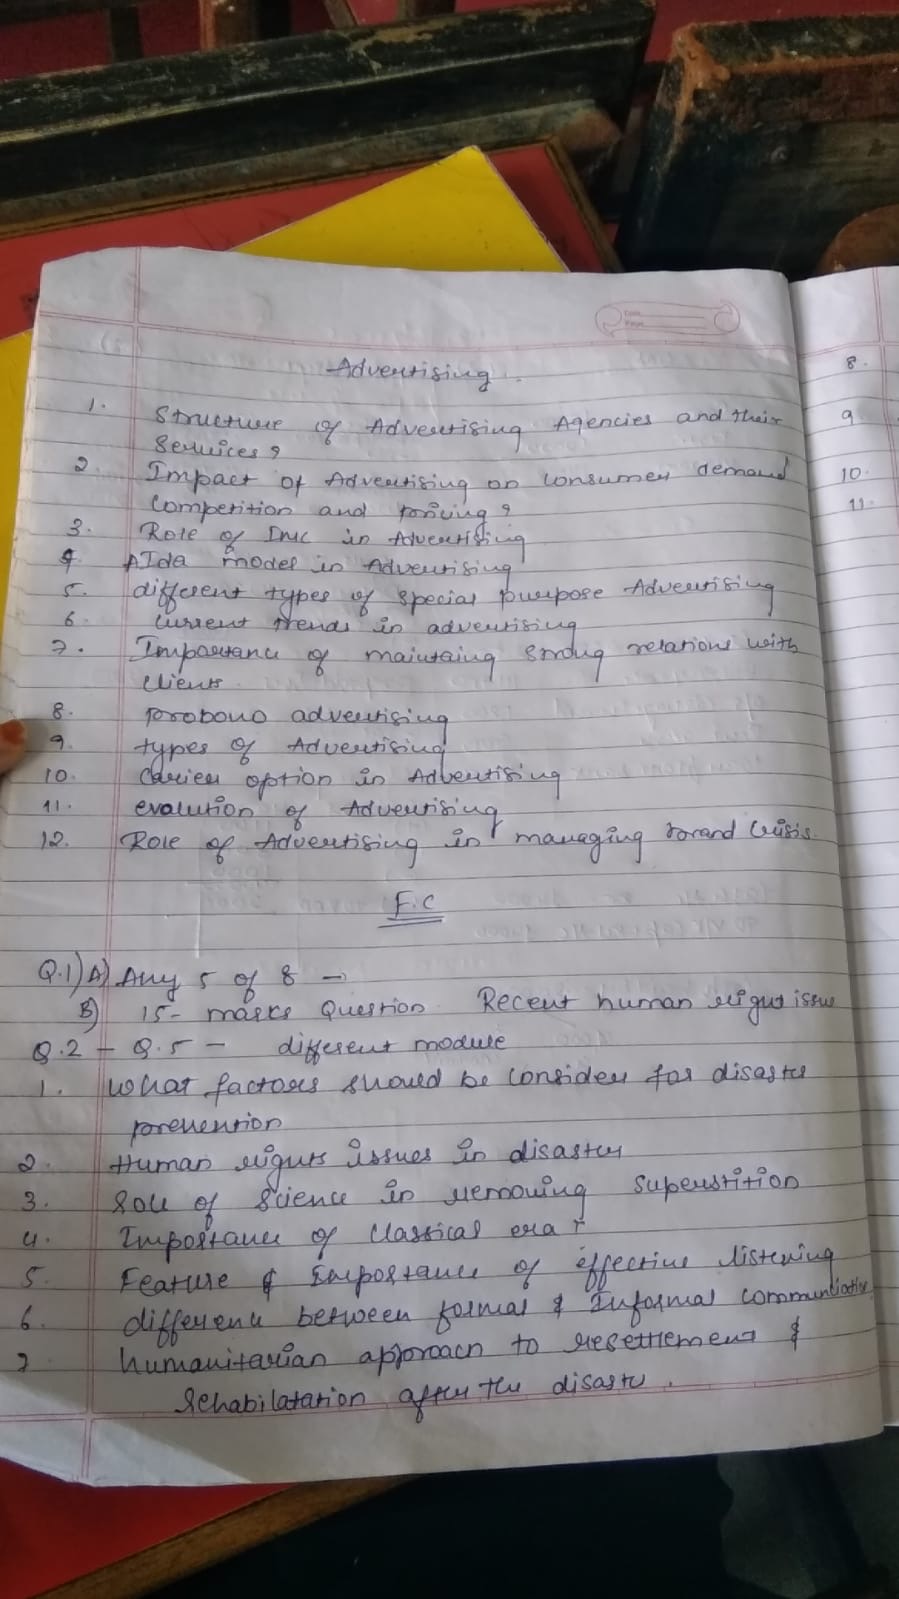 Advertising.
1. Structure of Advertising Agencies and their
Services?
2. Impact of Advertising on consumer demand
competition and pricing?
3. Role of IMC in Advertising
4. AIda model in Advertising
5. different types of special purpose Advertising
6. current trends in advertising
7. Importance of maintaing strong relations with
clients.
8. probono advertising
9. types of Advertising
10. Carier option in Advertising
11. evolution of Advertising
12. Role of Advertising in managing brand crisis.
F.C
Q.1) A) Any 5 of 8 →
B) 15- marks Question Recent human right issue
Q.2 - Q.5 - different module
1. What factors should be consider for disaster
prevention
2. Human rights issues in disaster
3. Role of Science in removing superstition
4. Importance of classical era
5. Feature & Importance of effective listening
6. difference between formal & Informal communication
7. humanitarian approach to resettlement &
rehabilatation after the disaster.
8.
9
10.
11.